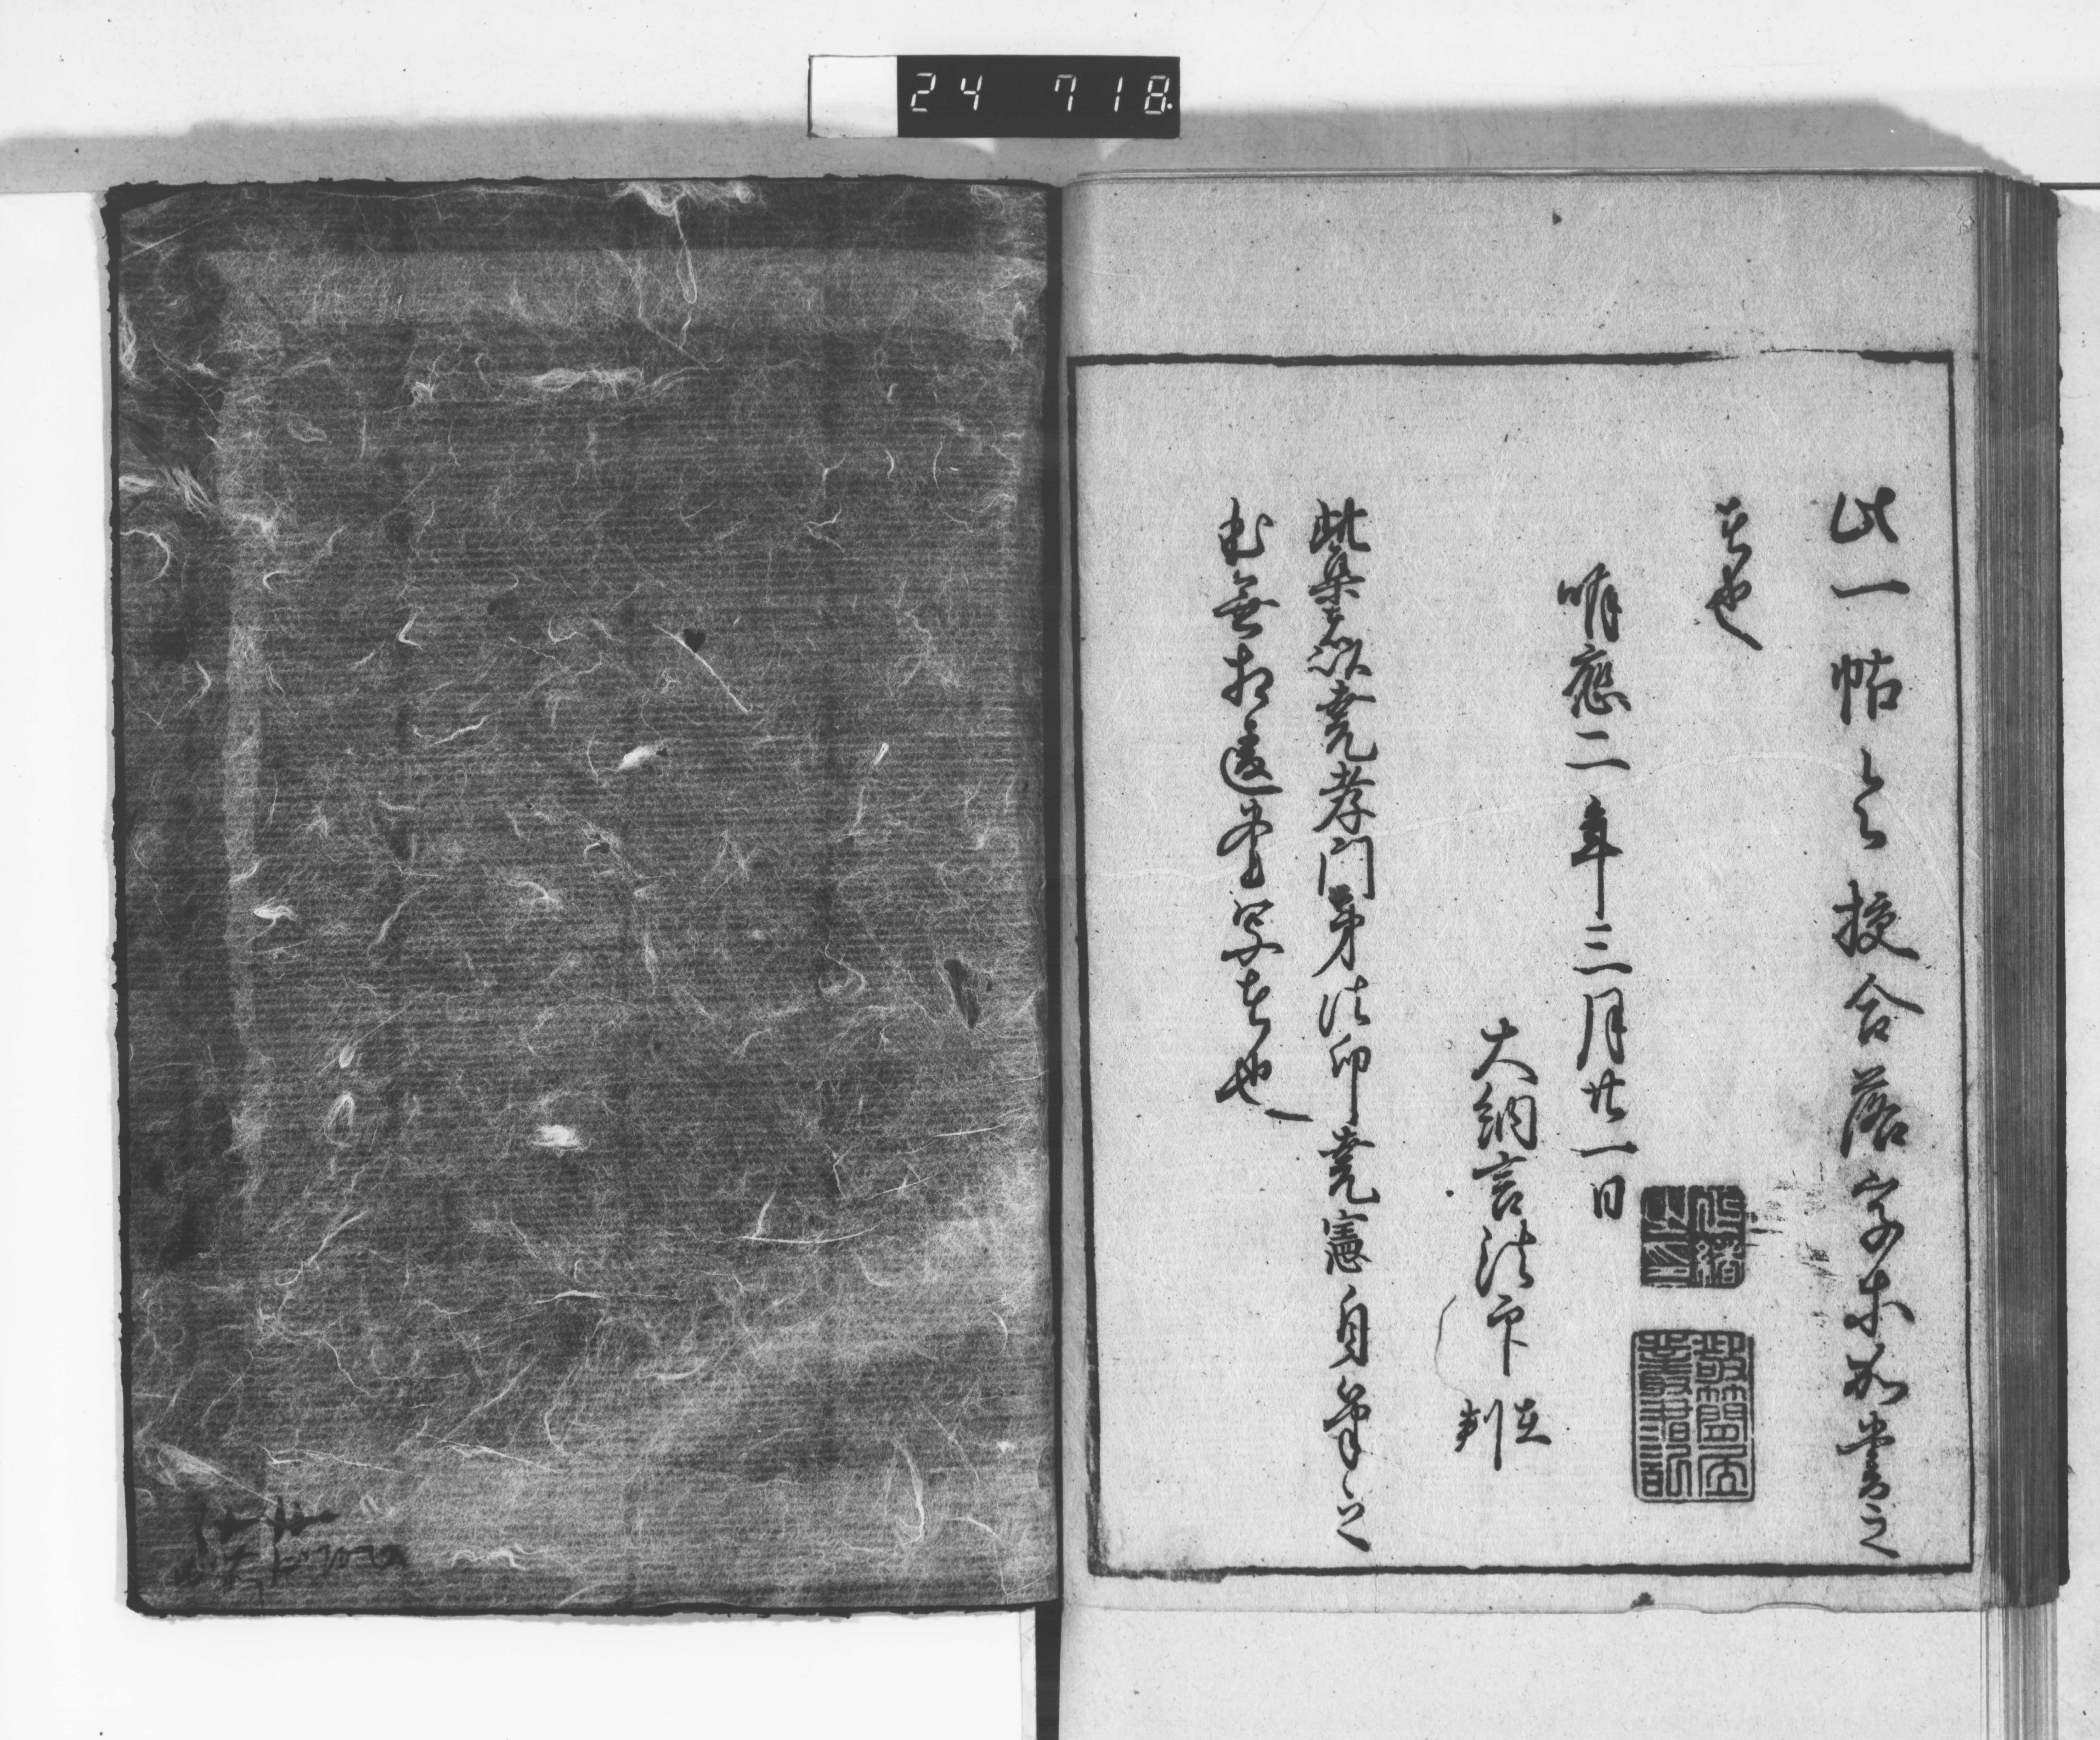 24 718
此一帖令挍合落字等如書之
者也
明應二年三月廿一日
大納言法印 在判
此集者以堯孝門弟法印堯憲自筆之
本無相違書写者也